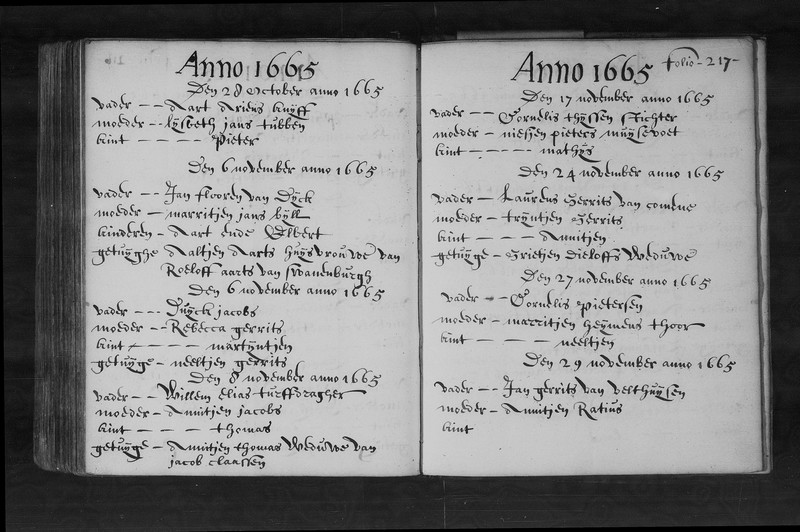 Anno 1665
Den 28 October anno 1665
vader -- Aart Ariens kuijff
moeder -- lijsbeth jans tubben
kint ---- Pieter
Den 6 november anno 1665
vader -- Jan flooren van Dijck
moeder - marritjen jans bijll
kinderen - Aart ende Elbert
getuijghe Aaltjen Aarts huijsvrouwe van
Roeloff aarts van swanenburgh
Den 6 november anno 1665
vader --- Duijck jacobs
moeder -- Rebecca gerrits
kint ---- martijntjen
getuijge - neeltjen gerrits
Den 8 november anno 1665
vader -- Willem elias turffdragher
moeder - Annitjen jacobs
kint ---- thomas
getuijge - Annitjen thomas Weduwe van
jacob claassen
Anno 1665
folio - 217 -
Den 17 november anno 1665
vader -- Cornelis thijssen stichter
moeder - niesjen pieters muijsevoet
kint ---- mathijs
Den 24 november anno 1665
vader - Laurens Gerrits van comene
moeder - trijntjen Gerrits
kint --- Annitjen
getuijge - Grietjen dieloffs Weduwe
Den 27 november anno 1665
vader - Cornelis Pietersen
moeder - marritjen heijmens thoor
kint ---- neeltjen
Den 29 november anno 1665
vader -- Jan gerrits van velthuijsen
moeder - Annitjen Ratius
kint